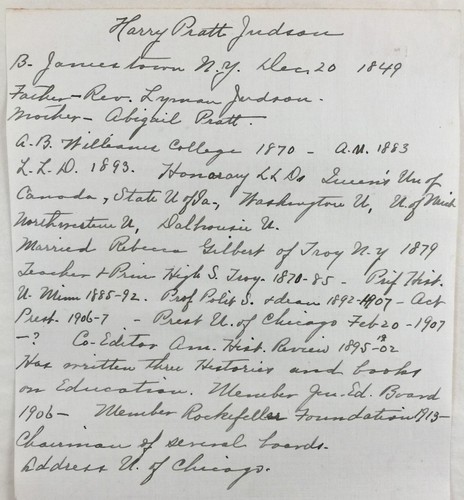 Harry Pratt Judson
B- Jamestown N.Y. Dec. 20 1849
Father- Rev. Lyman Judson.
Mother- Abigail Pratt.
A.B. Williams College 1870 - A.M. 1883
L.L.D. 1893. Honorary LLDs Queen's Un of
Canada, State U of Ia., Washington U, U of Mich
Northwestern U, Dalhousie U.
Married Rebecca Gilbert of Troy N.Y 1879
Teacher & Prin High S. Troy. 1870-85 - Prof Hist.
U. Minn 1885-92. Prof Polit S. & dean 1892-1907 - Act
Prest. 1906-7 - Prest U. of Chicago Feb 20-1907
-? Co-Editor Am. Hist. Review 1895-02
Has written three Histories and books
on Education. Member Gen. Ed. Board
1906- Member Rockefeller Foundation 1913-
Chairman of several boards.
Address U. of Chicago.